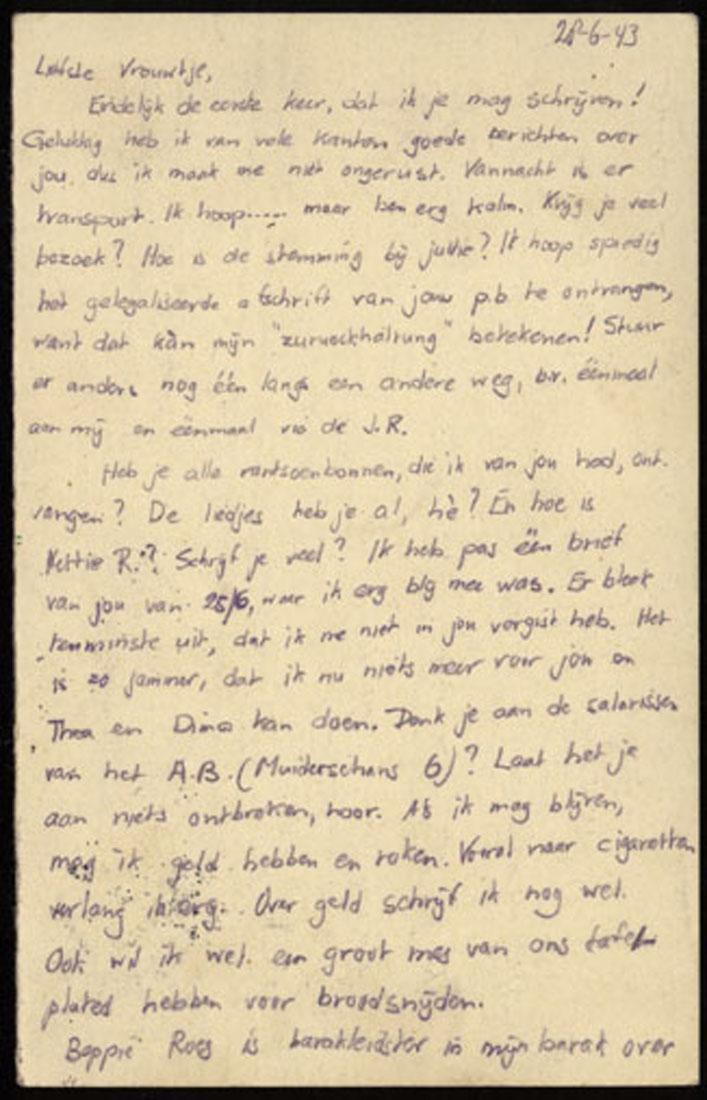 28-6-43
Liefste Vrouwtje,
Eindelijk de eerste keer, dat ik je mag schrijven!
Gelukkig heb ik van vele kanten goede berichten over
jou, dus ik maak me niet ongerust. Vannacht is er
transport. Ik hoop..... maar ben erg kalm. Krijg je veel
bezoek? Hoe is de stemming bij jullie? Ik hoop spoedig
het gelegaliseerde afschrift van jouw p.b te ontvangen,
want dat kàn mijn "zurueckhaltung" betekenen! Stuur
er anders nog één langs een andere weg, b.v. éénmaal
aan mij en éénmaal via de J.R.
Heb je alle rantsoenbonnen, die ik van jou had, ont-
vangen? De liedjes heb je al, hè? En hoe is
Nettie R.? Schrijf je veel? Ik heb pas één brief
van jou van 25/6, waar ik erg blij mee was. Er bleek
tenminste uit, dat ik me niet in jou vergist heb. Het
is zo jammer, dat ik nu niets meer voor jou en
Thea en Dina kan doen. Denk je aan de salarissen
van het A.B. (Muiderschans 6)? Laat het je
aan niets ontbreken, hoor. Als ik mag blijven,
mag ik geld hebben en roken. Vooral naar cigaretten
verlang ik erg. Over geld schrijf ik nog wel.
Ook wil ik wel een groot mes van ons tafel
plated hebben voor broodsnijden.
Beppie Roeg is barakleidster in mijn barak over